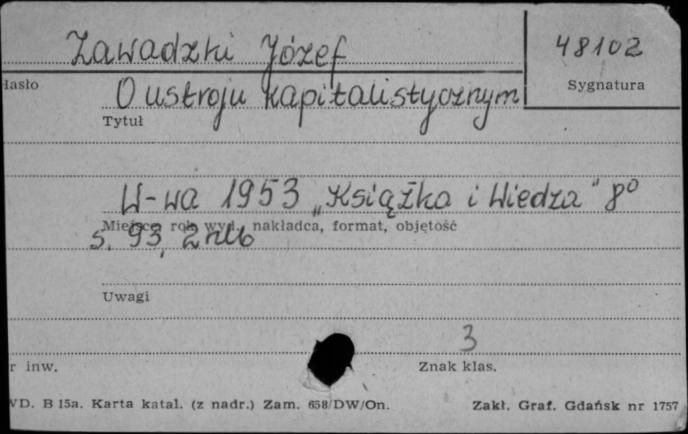 Zawadzki Józef
48102
Hasło
Sygnatura
O ustroju kapitalistycznym
Tytuł
W-wa 1953 „Książka i Wiedza" 8°
Miejsce rok wyd. nakładca, format, objętość
s. 93, 2 nlb
Uwagi
3
r inw.
Znak klas.
WD. B 15a. Karta katal. (z nadr.) Zam. 658/DW/On.
Zakł. Graf. Gdańsk nr 1757